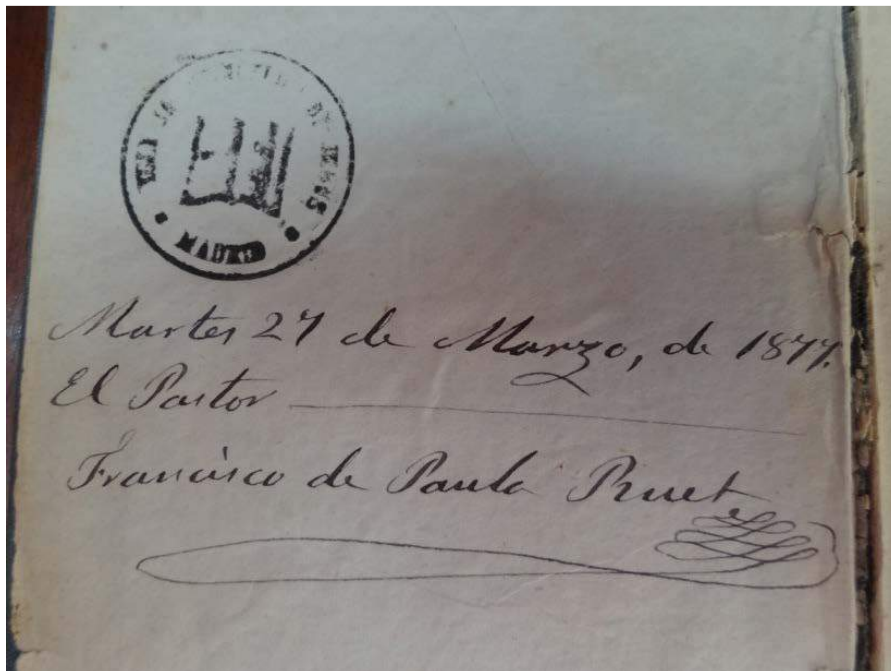 MADRID
Martes 27 de Marzo, de 1877.
El Pastor
Francisco de Paula Ruet